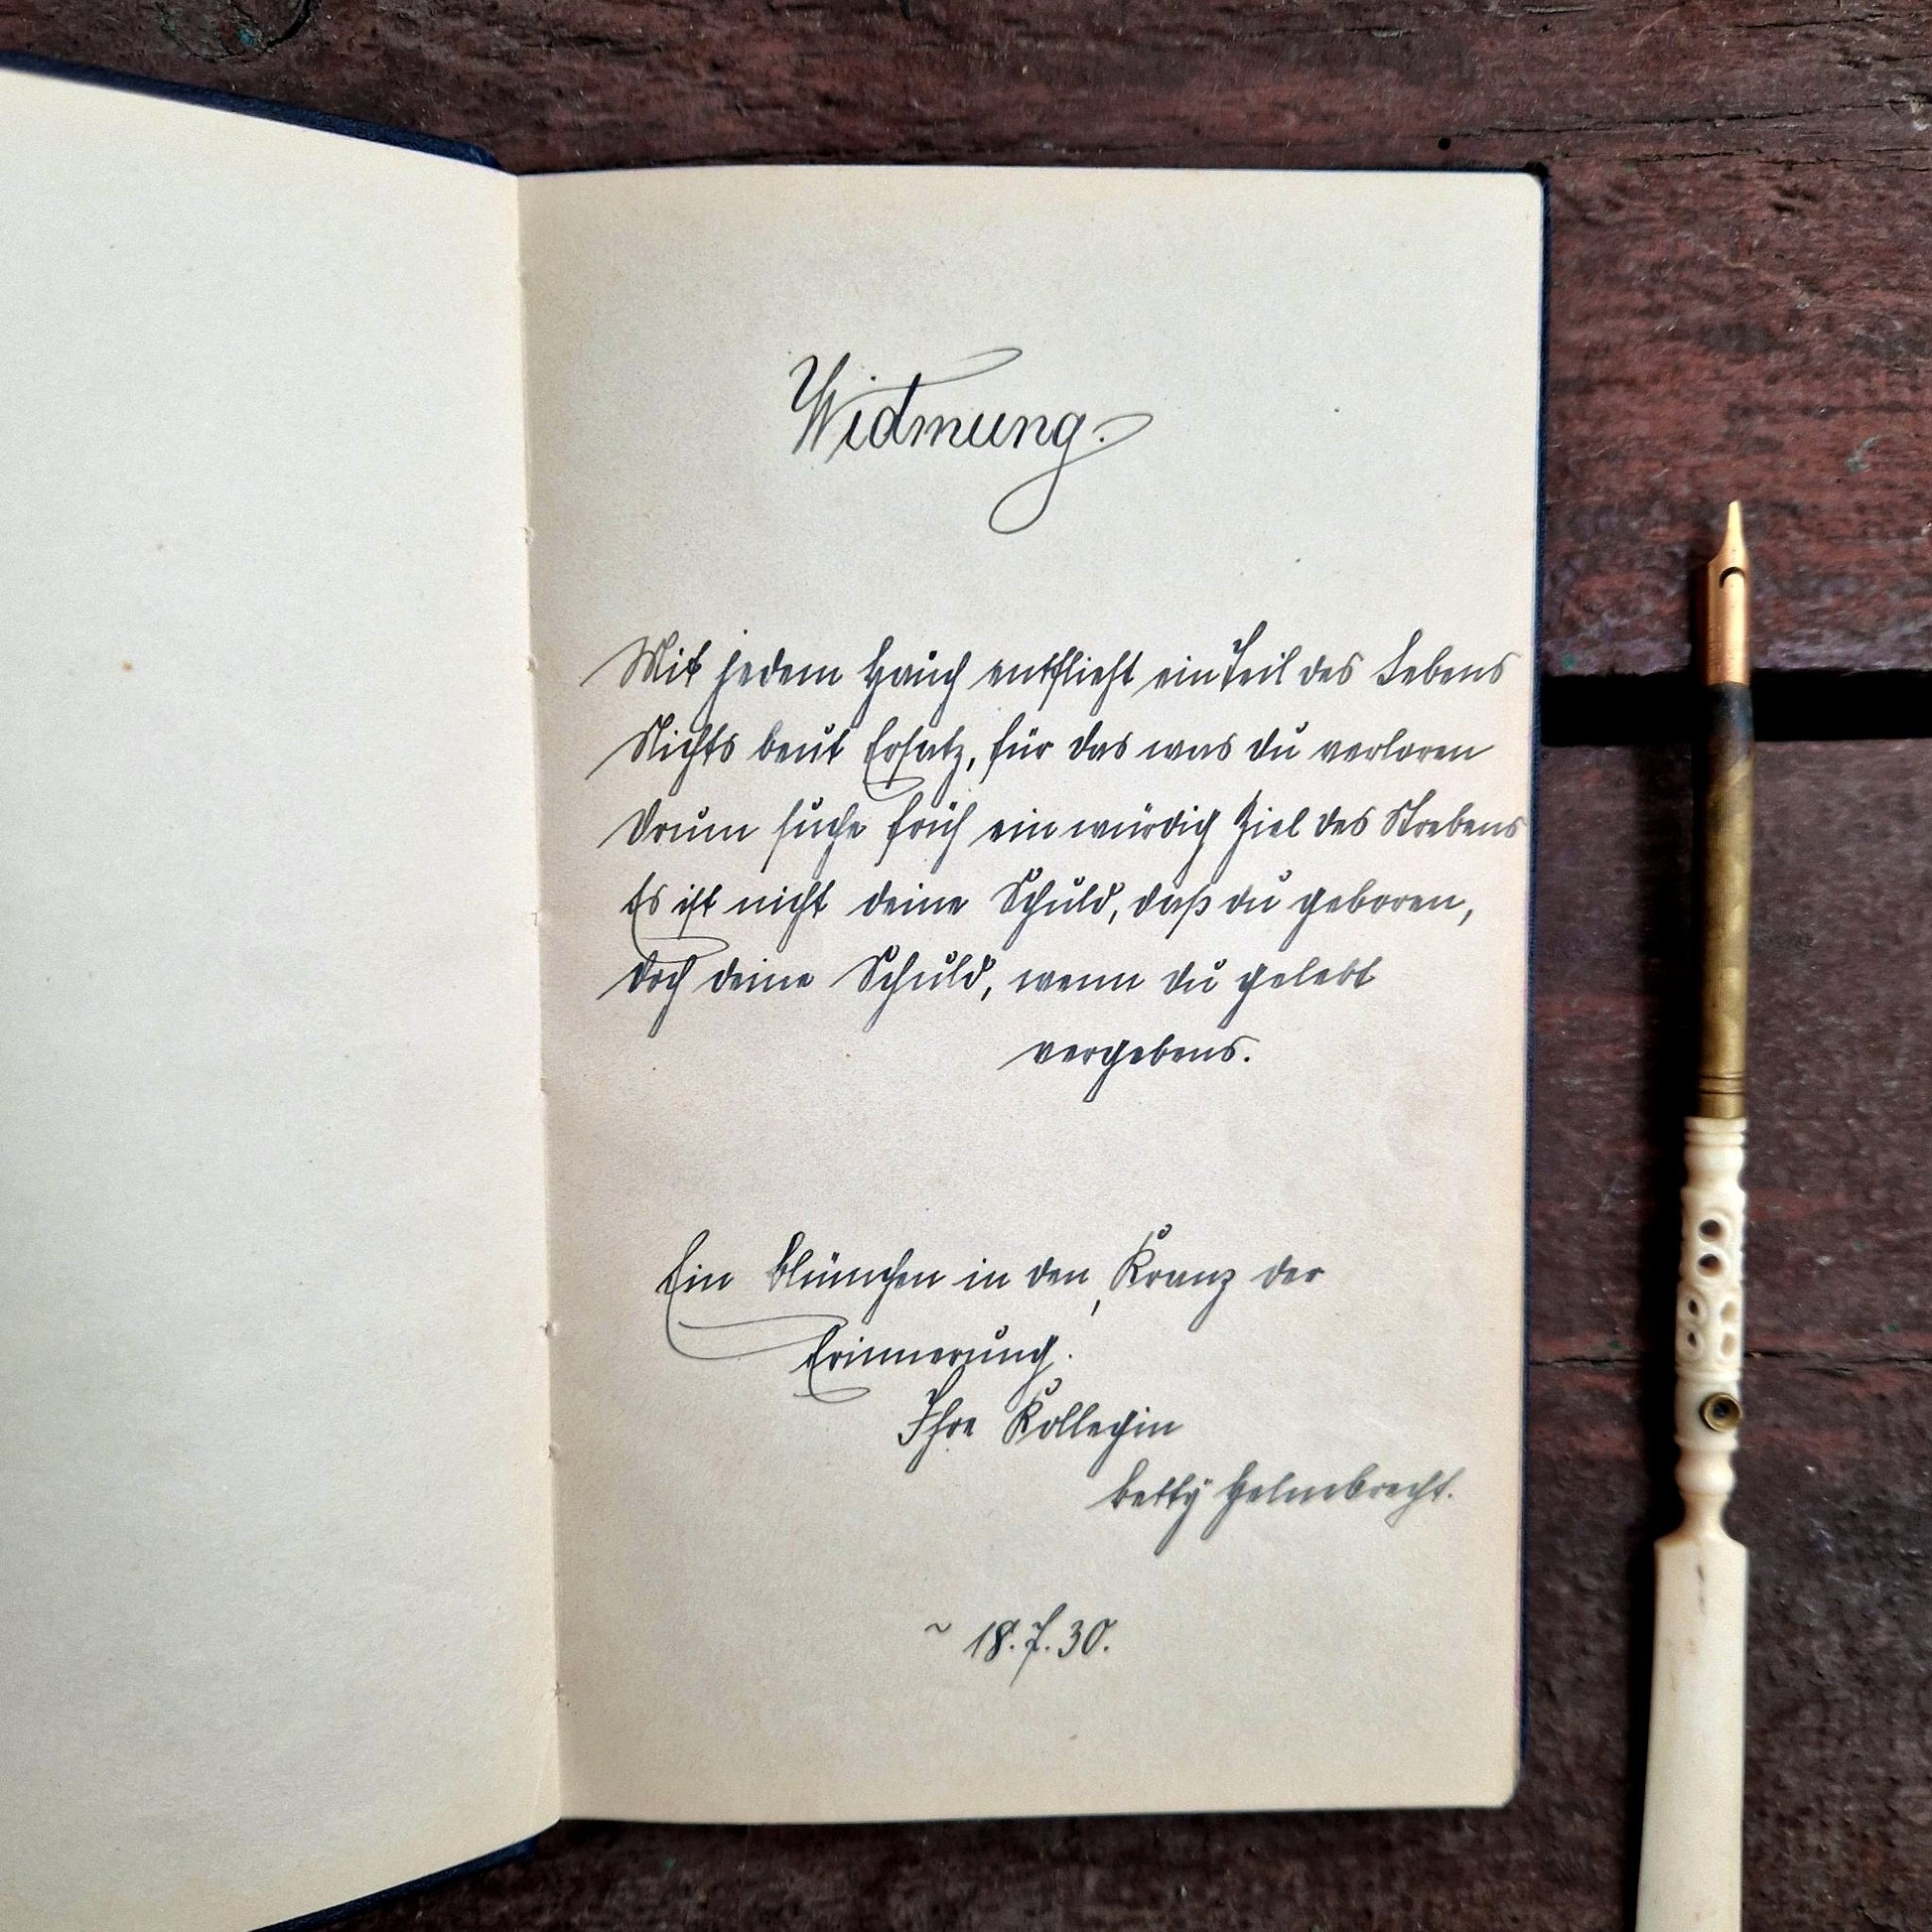 Widmung.
Mit jedem Hauch entflieht ein Teil des Lebens
Nichts beut Ersatz, für das was du verloren
Drum suche früh ein würdig Ziel des Strebens
Es ist nicht deine Schuld, daß du geboren,
Doch deine Schuld, wenn du gelebt
vergebens.
Ein Blümchen in den Kranz der
Erinnerung.
Ihre Kollegin
Betty Helmbrecht.
~ 18.7.30.